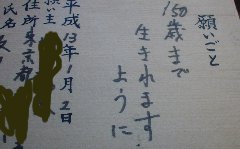 願いごと
150歳まで
生きれます
ように
平成13年1月2日
願い主
住所 東京都
氏名